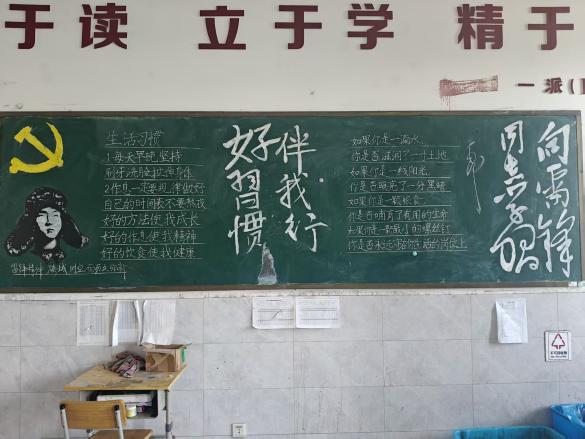 于读 立于学 精于
一派(
生活习惯
1每天早晚坚持
刷牙洗脸,
2作息一定要规律做好
自己的时间表不要熬夜
好的方法使我成长
好的作息使我精神
好的饮食使我健康
好習慣
伴我行
如果你是一滴水,
你是否滋润了一寸土地
如果你是一线阳光,
你是否照亮了一分黑暗
如果你是一颗粮食
你是否哺育了有用的生命
如果你是一颗最小的螺丝钉
你是否永远坚守在你生活的岗位上
向雷锋
同志学習
不可回收物